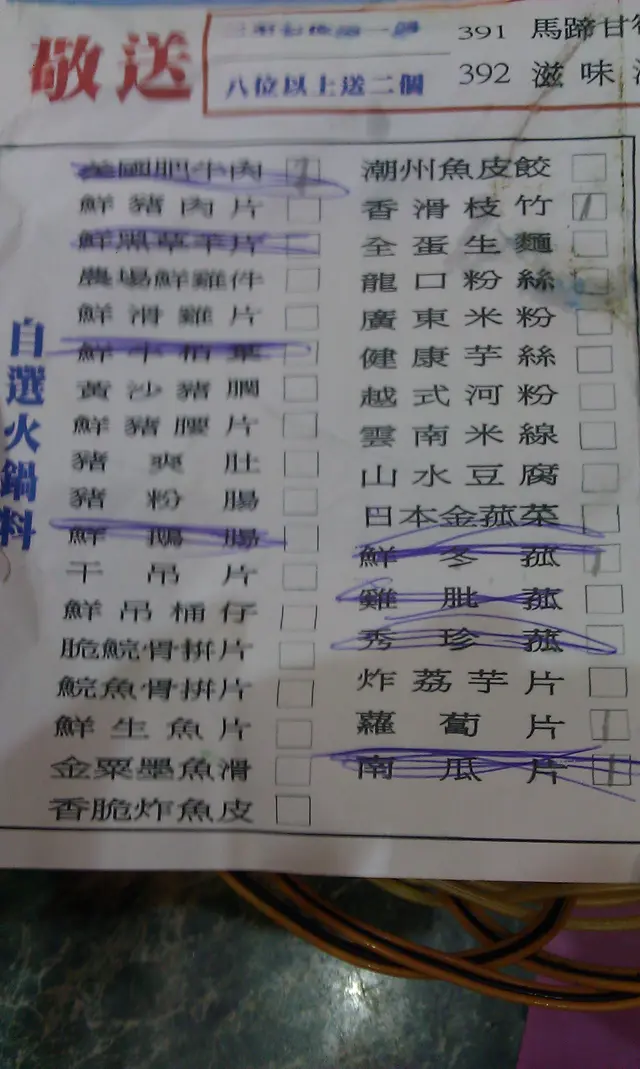 敬送
八位以上送二個
391 馬蹄甘
392 滋味
自選火鍋料
美國肥牛肉
鮮豬肉片
鮮黑草羊片
農場鮮雞件
鮮滑雞片
鮮牛柏葉
黃沙豬膶
鮮豬腰片
豬爽肚
豬粉腸
鮮鵝腸
干吊片
鮮吊桶仔
脆鯇骨拼片
鯇魚骨拼片
鮮生魚片
金粟墨魚滑
香脆炸魚皮
潮州魚皮餃
香滑枝竹
全蛋生麵
龍口粉絲
廣東米粉
健康芋絲
越式河粉
雲南米線
山水豆腐
日本金菰菜
鮮冬菰
雞肶菰
秀珍菰
炸荔芋片
蘿蔔片
南瓜片